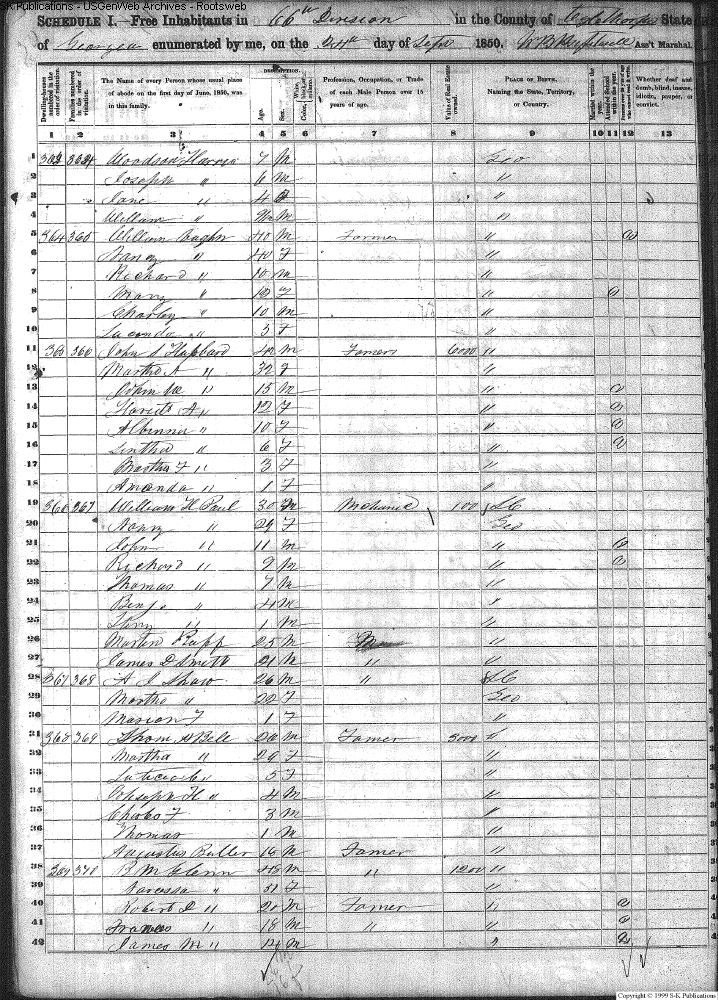 S-K Publications - USGenWeb Archives - Rootsweb
SCHEDULE I.—Free Inhabitants in 66th Division in the County of State
of Georgia enumerated by me, on the 24th day of Sept 1850. Ass't Marshal.
DESCRIPTION.
Dwelling-houses numbered in the order of visitation. Families numbered in the order of visitation. The Name of every Person whose usual place of abode on the first day of June, 1850, was in this family. Age. Sex. Color, White, black, or mulatto. Profession, Occupation, or Trade of each Male Person over 15 years of age. Value of Real Estate owned. PLACE OF BIRTH. Naming the State, Territory, or Country. Married within the year. Attended School within the year. Persons over 20 y'rs of age who cannot read & write. Whether deaf and dumb, blind, insane, idiotic, pauper, or convict.
1 2 3 4 5 6 7 8 9 10 11 12 13
1 Woodson 7 M Geo
2 Joseph " 6 M "
3 Jane " 4 "
4 William " M "
5 364 365 William Vaughn 40 M Farmer "
6 Nancy " 40 F "
7 Richard " 10 M "
8 Mary " 12 F "
9 Charley " 10 M "
10 Lucinda " 3 F "
11 365 366 John S Hubbard 42 M Famer 6000 "
12 Martha A " 32 F "
13 John " 15 M "
14 Hariett A " 12 F "
15 Albinna " 10 F "
16 " 6 F "
17 Martha F " 3 F "
18 Amanda " 1 F "
19 366 367 William H Paul 30 M Mechanic 100 SC
20 Nancy " 29 F Geo
21 John " 11 M "
22 Richard " 9 M "
23 Thomas " 7 M "
24 Benj " 4 M "
25 " 1 M "
26 Martin Rupp 25 M "
27 James D Smith 21 M " "
28 367 368 A J Shaw 26 M " SC
29 Martha " 22 F Geo
30 Marion F 1 F "
31 368 369 Thom A Bell M Famer 3000 "
32 Martha " 29 F "
33 " 5 F "
34 Joseph H " 4 M "
35 F 3 M "
36 Thomas 1 M "
37 Augustus Butler 16 M Famer "
38 369 370 B M Glenn 48 M " 1200 "
39 Narcissa " 51 F "
40 Robert D " 20 M Famer "
41 Frances " 18 M " "
42 James M " 14 M "
Copyright © 1999 S-K Publications